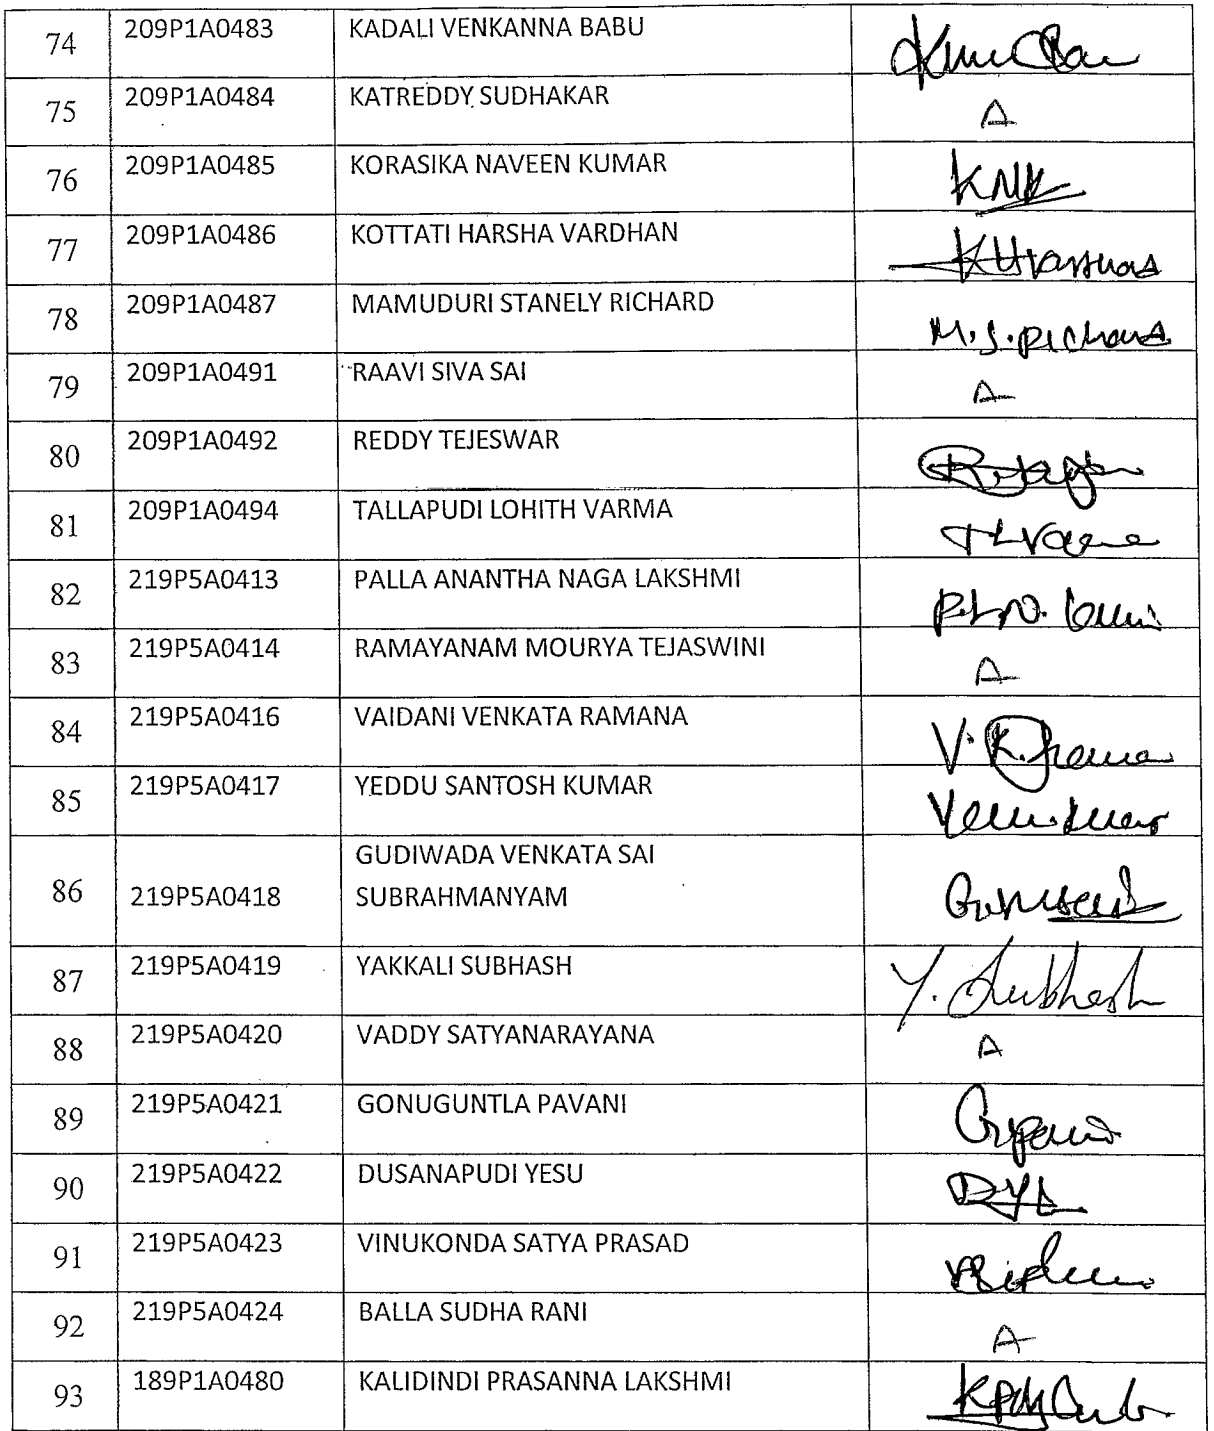 74 209P1A0483 KADALI VENKANNA BABU
75 209P1A0484 KATREDDY SUDHAKAR A
76 209P1A0485 KORASIKA NAVEEN KUMAR KNK
77 209P1A0486 KOTTATI HARSHA VARDHAN
78 209P1A0487 MAMUDURI STANELY RICHARD M.S.Richard
79 209P1A0491 RAAVI SIVA SAI A
80 209P1A0492 REDDY TEJESWAR
81 209P1A0494 TALLAPUDI LOHITH VARMA
82 219P5A0413 PALLA ANANTHA NAGA LAKSHMI
83 219P5A0414 RAMAYANAM MOURYA TEJASWINI A
84 219P5A0416 VAIDANI VENKATA RAMANA
85 219P5A0417 YEDDU SANTOSH KUMAR
GUDIWADA VENKATA SAI
86 219P5A0418 SUBRAHMANYAM
87 219P5A0419 YAKKALI SUBHASH Y. Subhash
88 219P5A0420 VADDY SATYANARAYANA A
89 219P5A0421 GONUGUNTLA PAVANI
90 219P5A0422 DUSANAPUDI YESU
91 219P5A0423 VINUKONDA SATYA PRASAD
92 219P5A0424 BALLA SUDHA RANI A
93 189P1A0480 KALIDINDI PRASANNA LAKSHMI